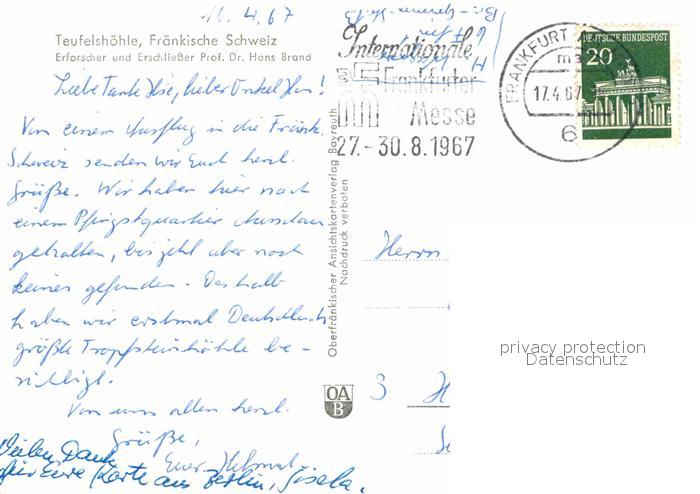 11. 4. 67
Teufelshöhle, Fränkische Schweiz
Erforscher und Erschließer Prof. Dr. Hans Brand
Liebe Tante Ilse, lieber Onkel Hans!
Von einem Ausflug in die Fränk.
Schweiz senden wir Euch herzl.
Grüße. Wir haben hier nach
einem Pfingstquartier Ausschau
gehalten, bis jetzt aber noch
keines gefunden. Deshalb
haben wir erstmal Deutschlands
größte Tropfsteinhöhle be-
sichtigt.
Von uns allen herzl.
Grüße,
Euer Helmut
Vielen Dank
für Eure Karte aus Berlin, Gisela.
Oberfränkischer Ansichtskartenverlag Bayreuth
Nachdruck verboten
OA
B
Internationale
Frankfurter
Messe
27.-30.8.1967
FRANKFURT
17.4.67
6
DEUTSCHE BUNDESPOST
20
Herrn
3 H
privacy protection
Datenschutz